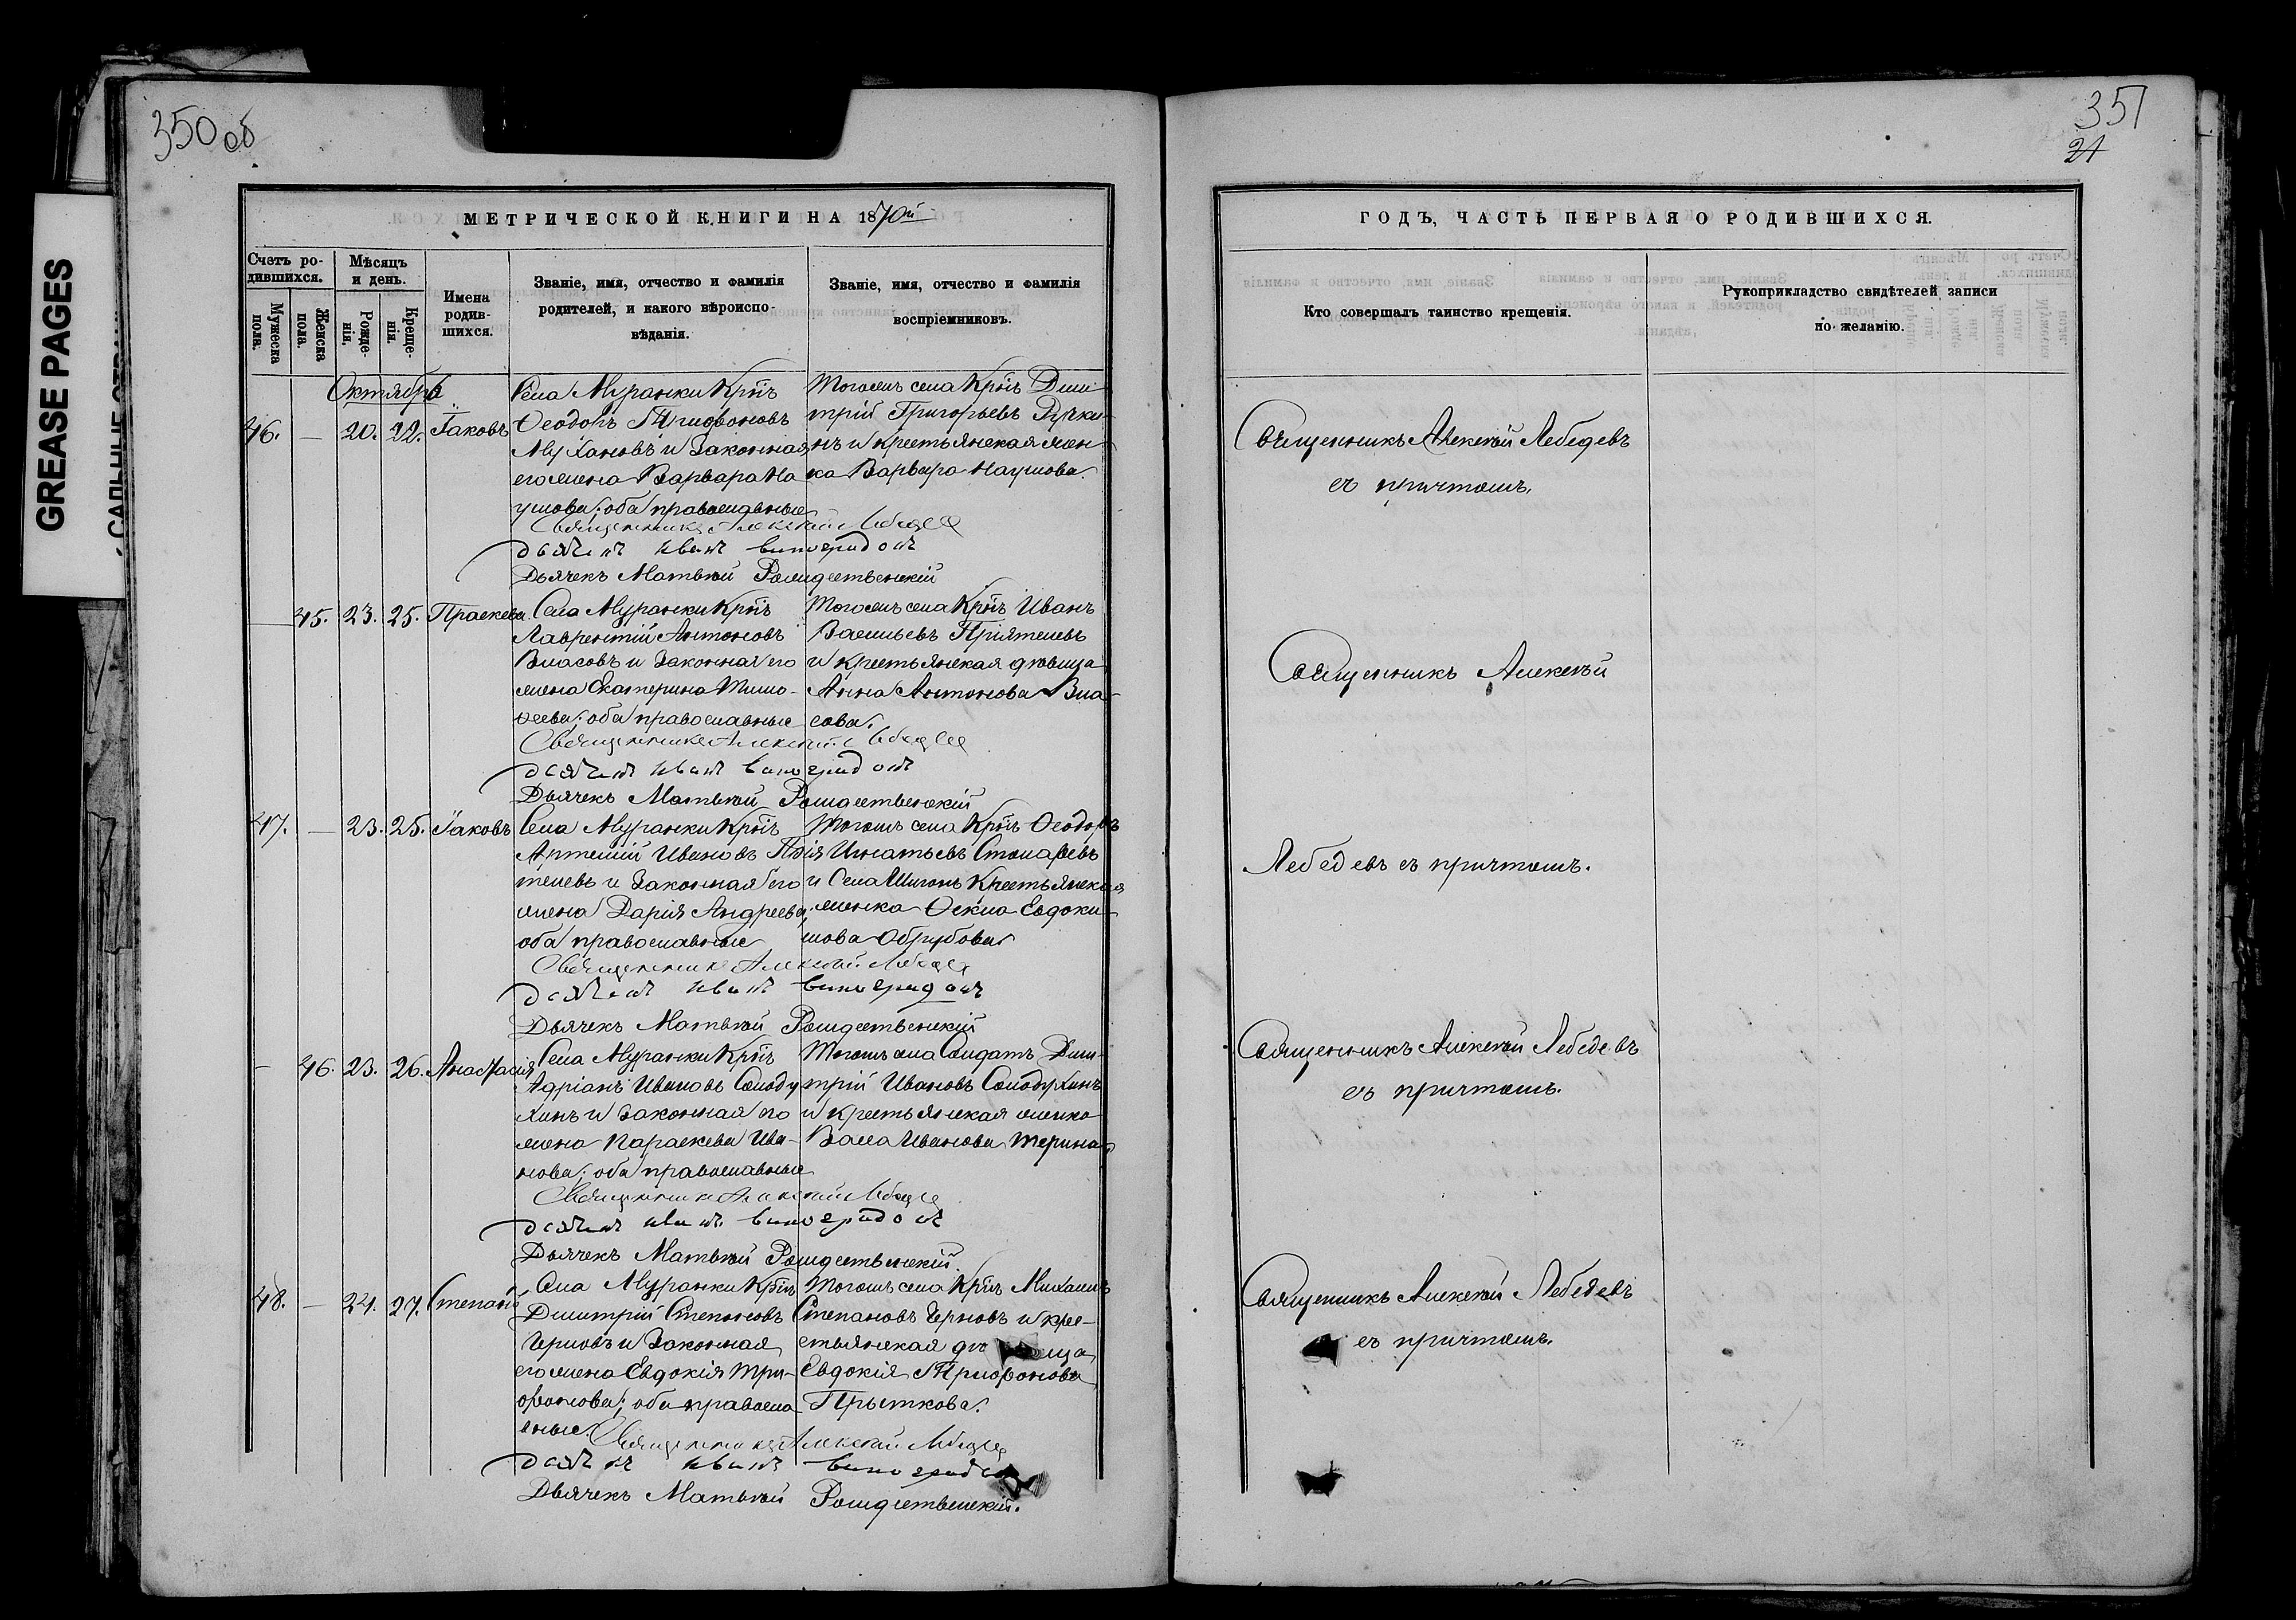 350 об
GREASE PAGES
МЕТРИЧЕСКОЙ КНИГИ НА 1870й
Счетъ ро-
дившихся.
Мужеска пола.
Женска пола.
Мѣсяцъ и день.
Рожде-
нія.
Креще-
нія.
Имена родив-
шихся.
Званіе, имя, отчество и фамилія
родителей, и какого вѣроиспо-
вѣданія.
Званіе, имя, отчество и фамилія
воспріемниковъ.
Октября
46. — 20. 22. Іаковъ
Села Муранки Крнъ
Ѳеодоръ Тригвоновъ
Мухановъ и законная
его жена Варвара На
умова; оба православные
Тогожъ села Крнъ Дими-
трій Григорьевъ Ручки-
нъ и крестьянская жен-
ка Варвара Наумова.
Священникъ Алексѣй Лебедев
Дьячекъ Иванъ Виноградовъ
Дьячекъ Матвѣй Рождественскій
45. 23. 25. Праскева
Села Муранки Крнъ
Лаврентій Антоновъ
Власовъ и законная его
жена Екатерина Тимо-
ѳеева; оба православные
Тогожъ села Крнъ Иванъ
Васильевъ Пріятелевъ
и крестьянская дѣвица
Анна Антонова Вла-
сова.
Священникъ Алексѣй Лебедев
Дьячекъ Иванъ Виноградовъ
Дьячекъ Матвѣй Рождественскій
47. — 23. 25. Іаковъ
Села Муранки Крнъ
Артемій Ивановъ Прія
телевъ и законная его
жена Дарія Андреева;
оба православные
Тогожъ села Крнъ Ѳеодоръ
Игнатьевъ Столаревъ
и Села Шигонъ Крестьянская
женка Ѳекла Евдоки-
мова Обрубова
Священникъ Алексѣй Лебедев
Дьячекъ Иванъ Виноградовъ
Дьячекъ Матвѣй Рождественскій
— 46. 23. 26. Анастасія
Села Муранки Крнъ
Адріанъ Ивановъ Солоду
хинъ и законная его
жена Параскева Ива-
нова; оба православные
Тогожъ села Солдатъ Дими-
трій Ивановъ Солодухинъ
и крестьянская женка
Васса Иванова
Священникъ Алексѣй Лебедев
Дьячекъ Иванъ Виноградовъ
Дьячекъ Матвѣй Рождественскій.
48. — 24. 27. Стефанъ
Села Муранки Крнъ
Димитрій Степановъ
Черновъ и законная
его жена Евдокія Три-
фонова; оба правосла
вные.
Тогожъ села Крнъ Михаилъ
Степановъ Черновъ и кре-
стьянская дѣвица
Евдокія Трифонова
Прыткова.
Священникъ Алексѣй Лебедев
Дьячекъ Иванъ Виноградовъ
Дьячекъ Матвѣй Рождественскій.
351
21
ГОДЪ, ЧАСТЬ ПЕРВАЯ О РОДИВШИХСЯ.
Кто совершалъ таинство крещенія.
Рукоприкладство свидѣтелей записи
по желанію.
Священникъ Алексѣй Лебедевъ
съ причтомъ.
Священникъ Алексѣй
Лебедевъ съ причтомъ.
Священникъ Алексѣй Лебедевъ
съ причтомъ.
Священникъ Алексѣй Лебедевъ
съ причтомъ.